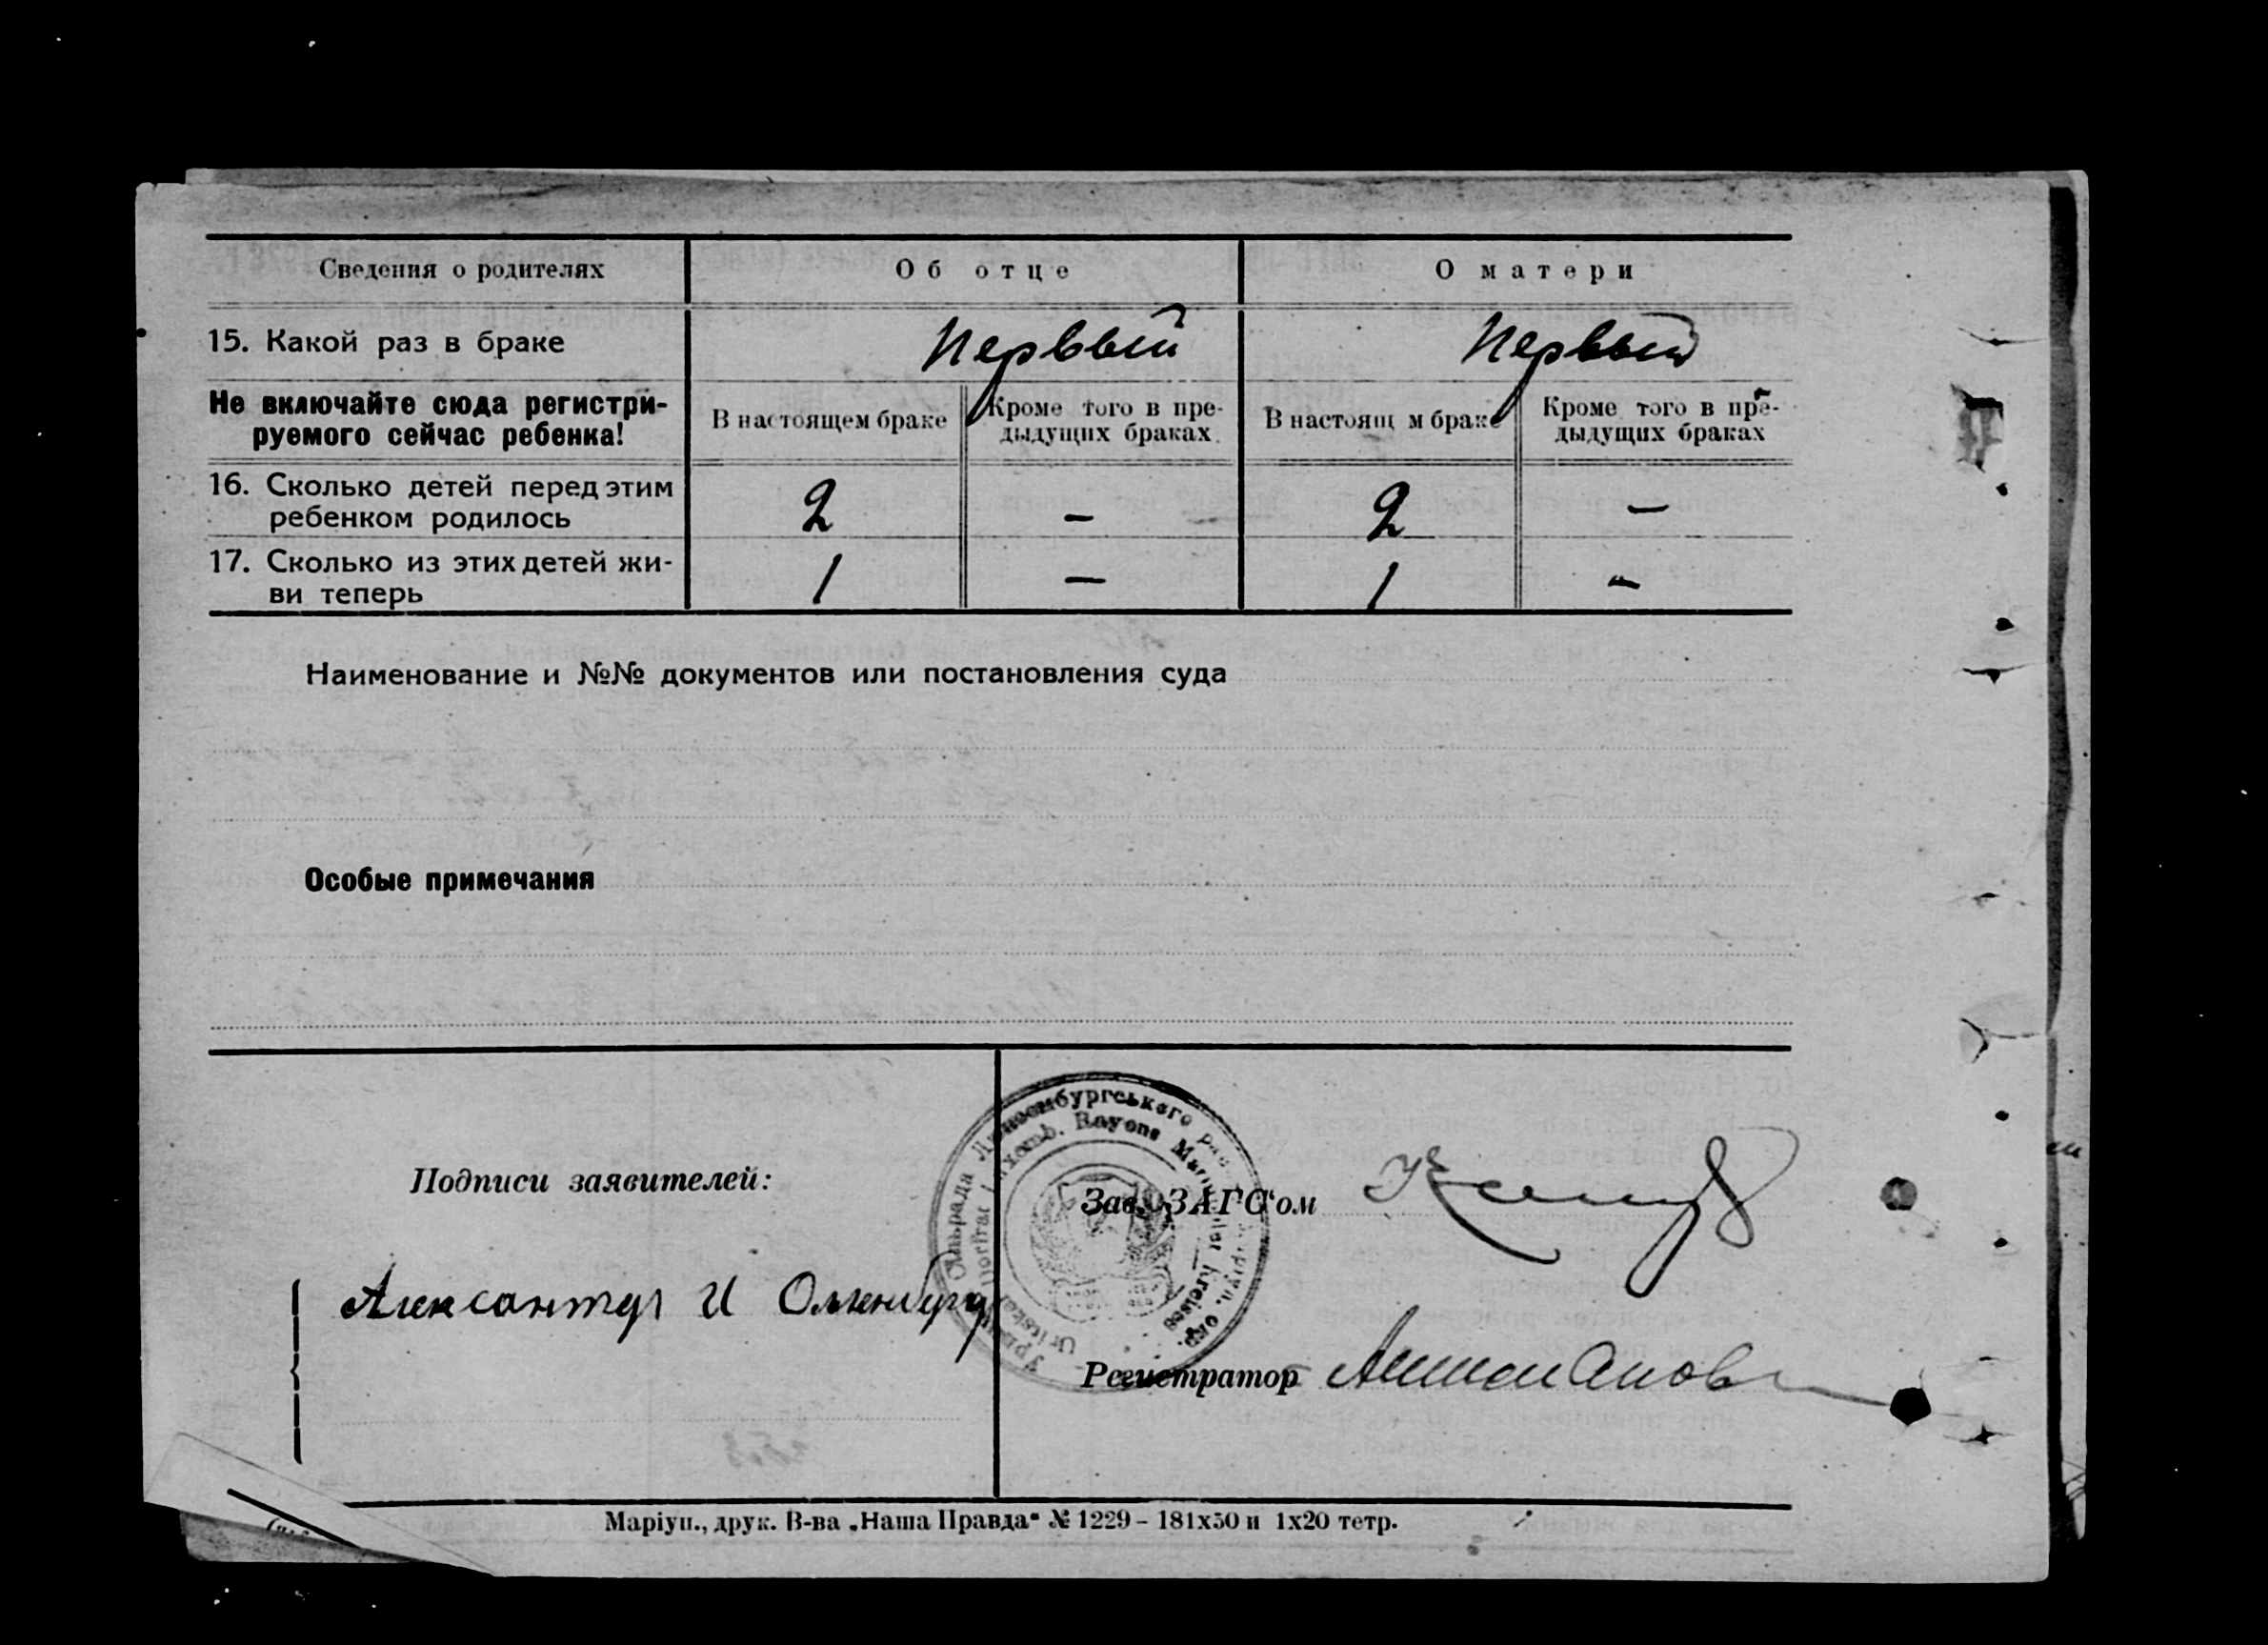 Сведения о родителях
Об отце
О матери
15. Какой раз в браке
Первый
Первый
Не включайте сюда регистри-
руемого сейчас ребенка!
В настоящем браке
Кроме того в пре-
дыдущих браках.
В настоящ м браке
Кроме того в пре-
дыдущих браках
16. Сколько детей перед этим
ребенком родилось
2
–
2
–
17. Сколько из этих детей жи-
ви теперь
1
–
1
–
Наименование и №№ документов или постановления суда
Особые примечания
Подписи заявителей:
Зав. ЗАГС'ом
Регистратор
Маріуп., друк. В-ва „Наша Правда" № 1229 – 181х50 и 1х20 тетр.